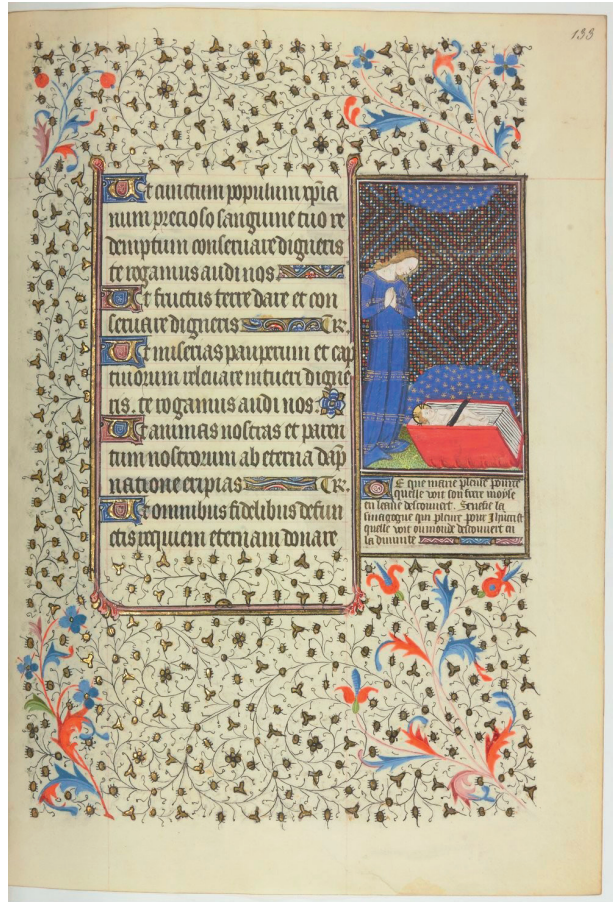 133
Ut cunctum populum xpia
num precioso sanguine tuo re
demptum conseruare digneris
te rogamus audi nos
Ut fructus terre dare et con
seruare digneris R.
Ut miserias pauperum et cap
tiuorum releuare intueri digne
ris. te rogamus audi nos
Ut animas nostras et paren
tum nostrorum ab eterna dap
natione eripias R.
Ut omnibus fidelibus defun
ctis requiem eternam donare
Ce que marie pleure pource
quelle voit son frere moyse
en leaue descouuert. Senefie la
sinagogue qui pleure pour Ihucrist
quelle voit ou monde descouuert en
la diuinite